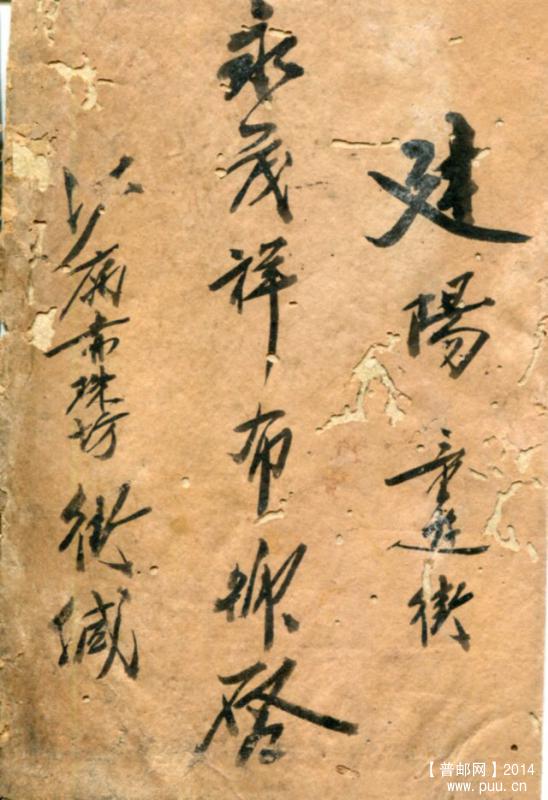 建陽童遊街
永茂祥布號啓
南赤珠坊街緘
【普邮网】2014
www.puu.cn